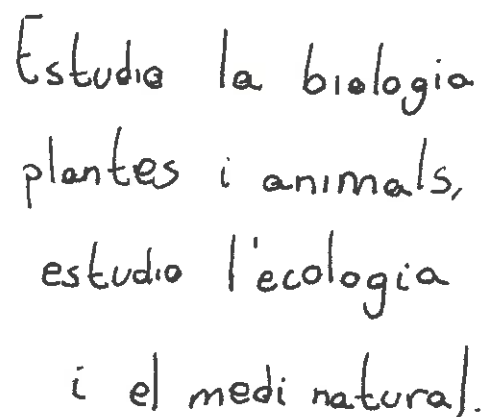 Estudio la biologia
plantes i animals,
estudio l'ecologia
i el medi natural.